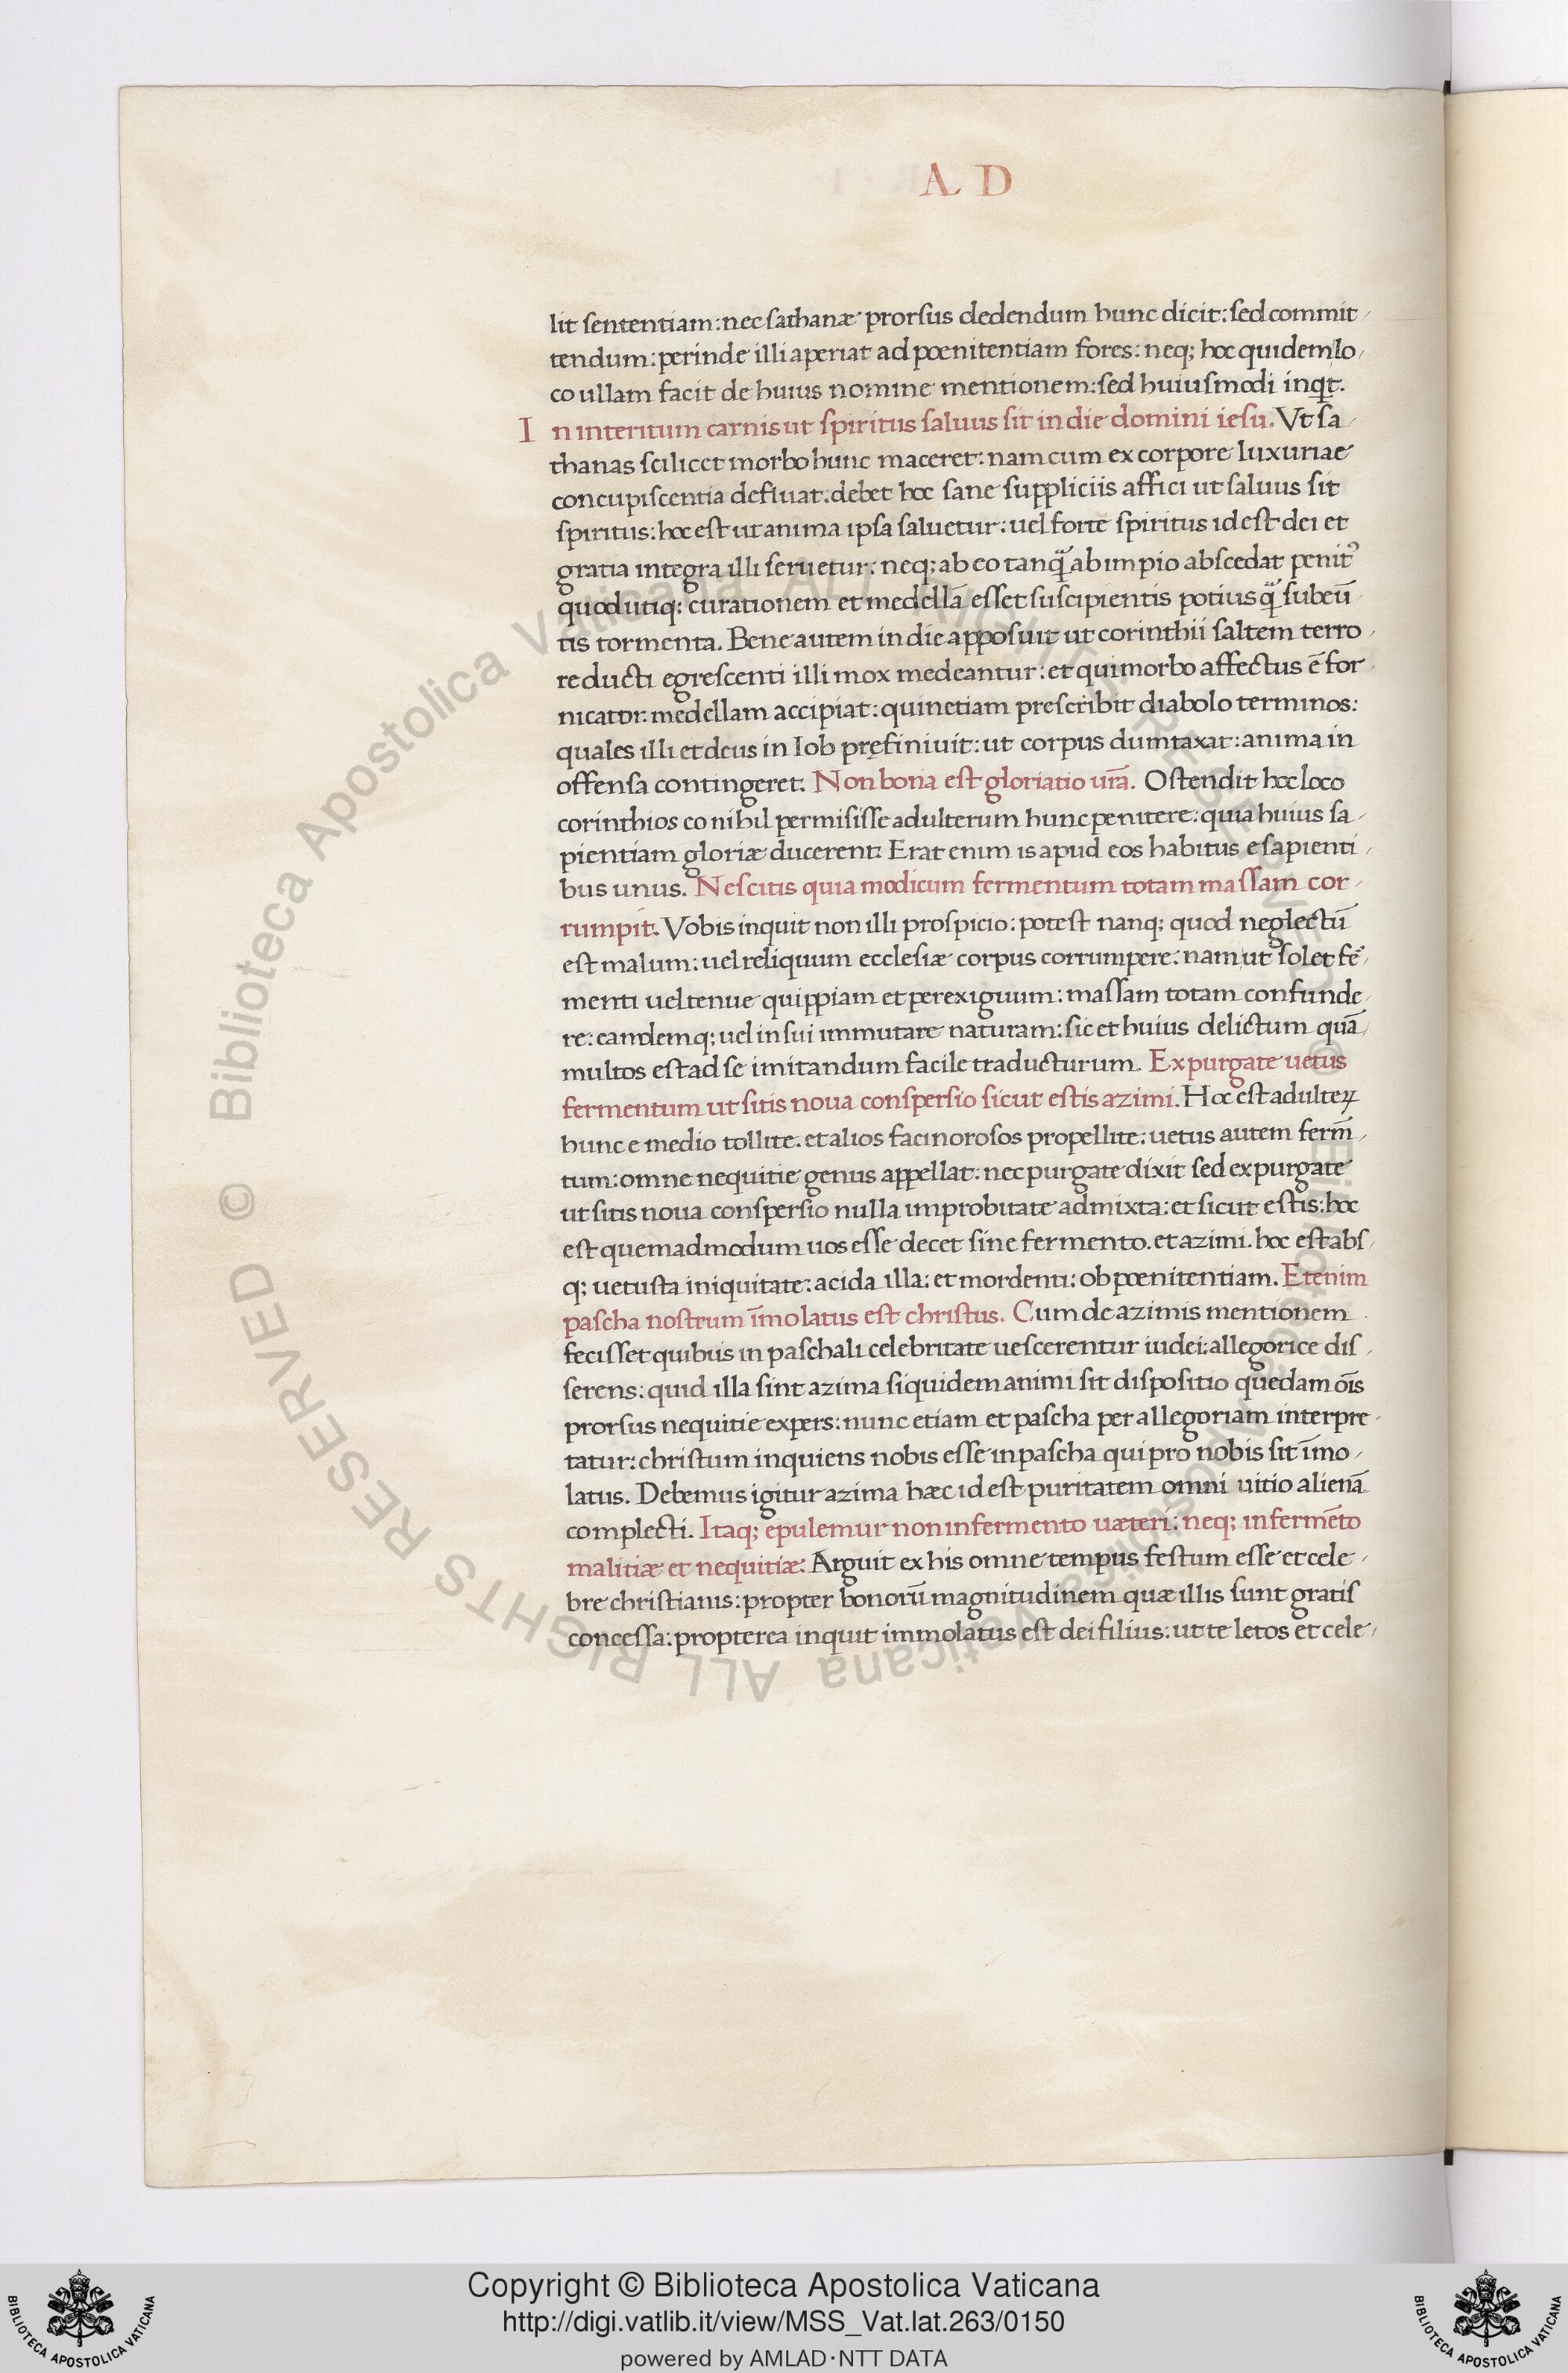 A D
lit sententiam: nec sathanæ prorsus dedendum hunc dicit: sed commit
tendum: perinde illi aperiat ad pœnitentiam fores: neq; hoc quidem lo
co ullam facit de huius nomine mentionem: sed huiusmodi inqt.
In interitum carnis ut spiritus saluus sit in die domini iesu. Vt sa
thanas scilicet morbo hunc maceret: nam cum ex corpore luxuriae
concupiscentia defluat: debet hoc sane suppliciis affici ut saluus sit
spiritus: hoc est ut anima ipsa saluetur: uel forte spiritus id est dei et
gratia integra illi seruetur: neq; ab eo tanq̃ ab impio abscedat penitꝰ
quod utiq: curationem et medellã esset suscipientis potius q̃ subeũ
tis tormenta. Bene autem in die apposuit ut corinthii saltem terro
re ducti egrescenti illi mox medeantur: et qui morbo affectus ē for
nicator: medellam accipiat: quinetiam prescribit diabolo terminos:
quales illi et deus in Iob pręfiniuit: ut corpus dumtaxat: anima in
offensa contingeret. Non bona est gloriatio urã. Ostendit hoc loco
corinthios eo nihil permisisse adulterum hunc penitere: quia huius sa
pientiam gloriæ ducerent: Erat enim is apud eos habitus e sapienti
bus unus. Nescitis quia modicum fermentum totam massam cor
rumpit. Vobis inquit non illi prospicio: potest nanq; quod neglectū
est malum: uel reliquum ecclesiæ corpus corrumpere: nam ut solet fē
menti uel tenue quippiam et perexiguum: massam totam confunde
re: eamdemq; uel in sui immutare naturam: sic et huius delictum quã
multos est ad se imitandum facile traducturum. Expurgate uetus
fermentum ut sitis noua conspersio sicut estis azimi. Hoc est adulteꝝ
hunc e medio tollite. et alios facinorosos propellite: uetus autem ferm̄
tum: omne nequitie genus appellat: nec purgate dixit sed expurgate
ut sitis noua conspersio nulla improbitate admixta: et sicut estis: hoc
est quemadmodum uos esse decet sine fermento. et azimi. hoc est abs
q; uetusta iniquitate: acida illa: et mordenti: ob pœnitentiam. Etenim
pascha nostrum īmolatus est christus. Cum de azimis mentionem
fecisset quibus in paschali celebritate uescerentur iudei: allegorice dis
serens: quid illa sint azima siquidem animi sit dispositio quedam oīs
prorsus nequitie expers: nunc etiam et pascha per allegoriam interpre
tatur: christum inquiens nobis esse in pascha qui pro nobis sit īmo
latus. Debemus igitur azima hæc id est puritatem omni uitio alienã
complecti. Itaq; epulemur non in fermento uæteri: neq; in fermēto
malitiæ et nequitiæ: Arguit ex his omne tempus festum esse et cele
bre christianis: propter bonorũ magnitudinem quæ illis sunt gratis
concessa: propterea inquit immolatus est dei filius: ut te letos et cele
Copyright © Biblioteca Apostolica Vaticana
http://digi.vatlib.it/view/MSS_Vat.lat.263/0150
powered by AMLAD·NTT DATA
BIBLIOTECA APOSTOLICA VATICANA
BIBLIOTECA APOSTOLICA VATICANA
© Biblioteca Apostolica Vaticana ALL RIGHTS RESERVED © Biblioteca Apostolica Vaticana ALL RIGHTS RESERVED